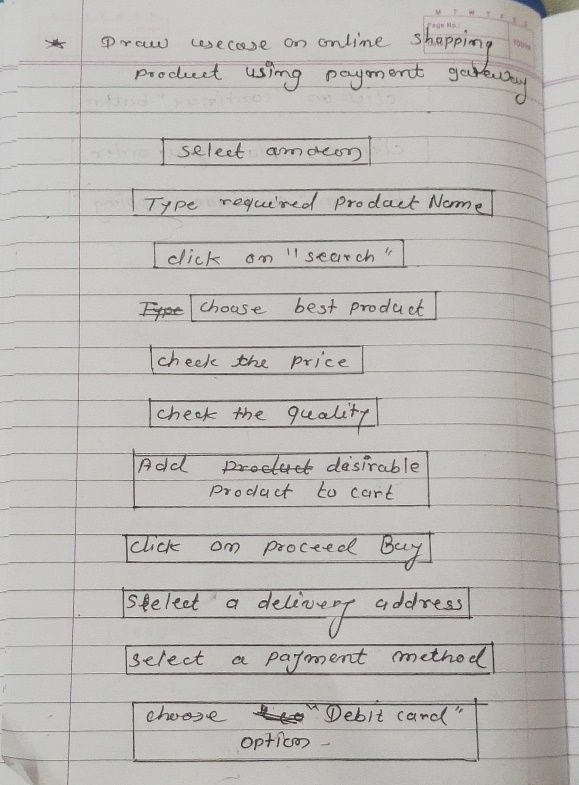 M T W T F S S
Page No.:
* Draw usecase on online shopping
product using payment gateway
select amazon
Type required product Name
click on "search"
Type choose best product
check the price
check the quality
Add product desirable
product to cart
click on proceed Buy
Select a delivery address
select a payment method
choose "Debit card"
option -